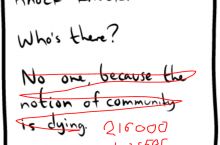 Who's there?
No one, because the
notion of community
is dying. 216000